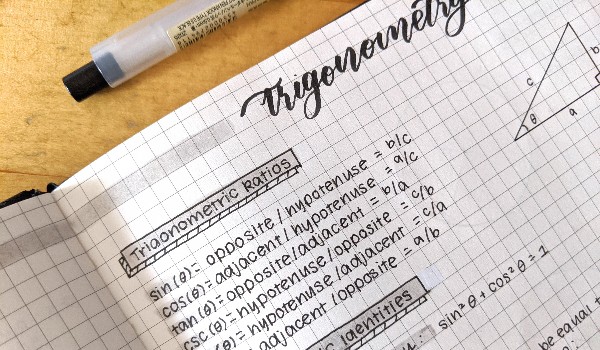 Trigonometry
c
b
θ
a
Trigonometric Ratios
sin(θ)= opposite / hypotenuse = b/c
cos(θ)= adjacent / hypotenuse = a/c
tan(θ)= opposite/adjacent = b/a
csc(θ)= hypotenuse/opposite = c/b
(θ)= hypotenuse/adjacent = c/a
adjacent /opposite = a/b
identities
sin²θ + cos²θ = 1
be equal